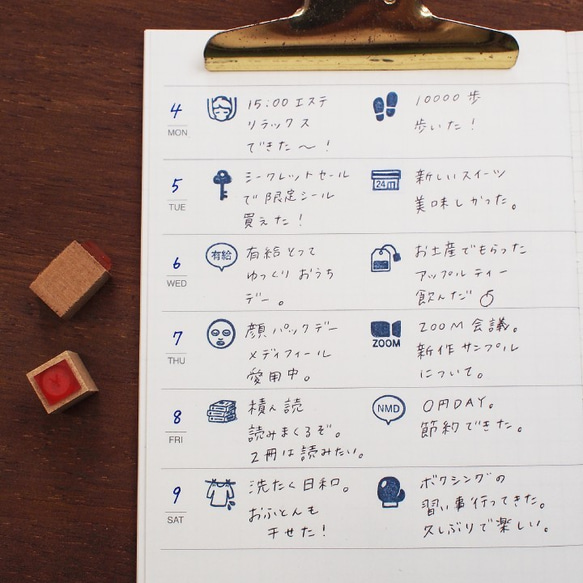 4
MON
15:00 エステ
リラックス
できた〜!
10000 歩
歩いた!
5
TUE
シークレットセール
で 限定シール
買えた!
24h
新しいスイーツ
美味しかった。
6
WED
有給
有給とって
ゆっくり おうち
デー。
お土産でもらった
アップルティー
飲んだ
7
THU
顔パックデー
メディフィール
愛用中。
ZOOM
ZOOM 会議。
新作サンプル
について。
8
FRI
積ん読
読みまくるぞ。
2冊は読みたい。
NMD
0円DAY。
節約できた。
9
SAT
洗たく日和。
おふとんも
干せた!
ボクシングの
習い事行ってきた。
久しぶりで楽しい。